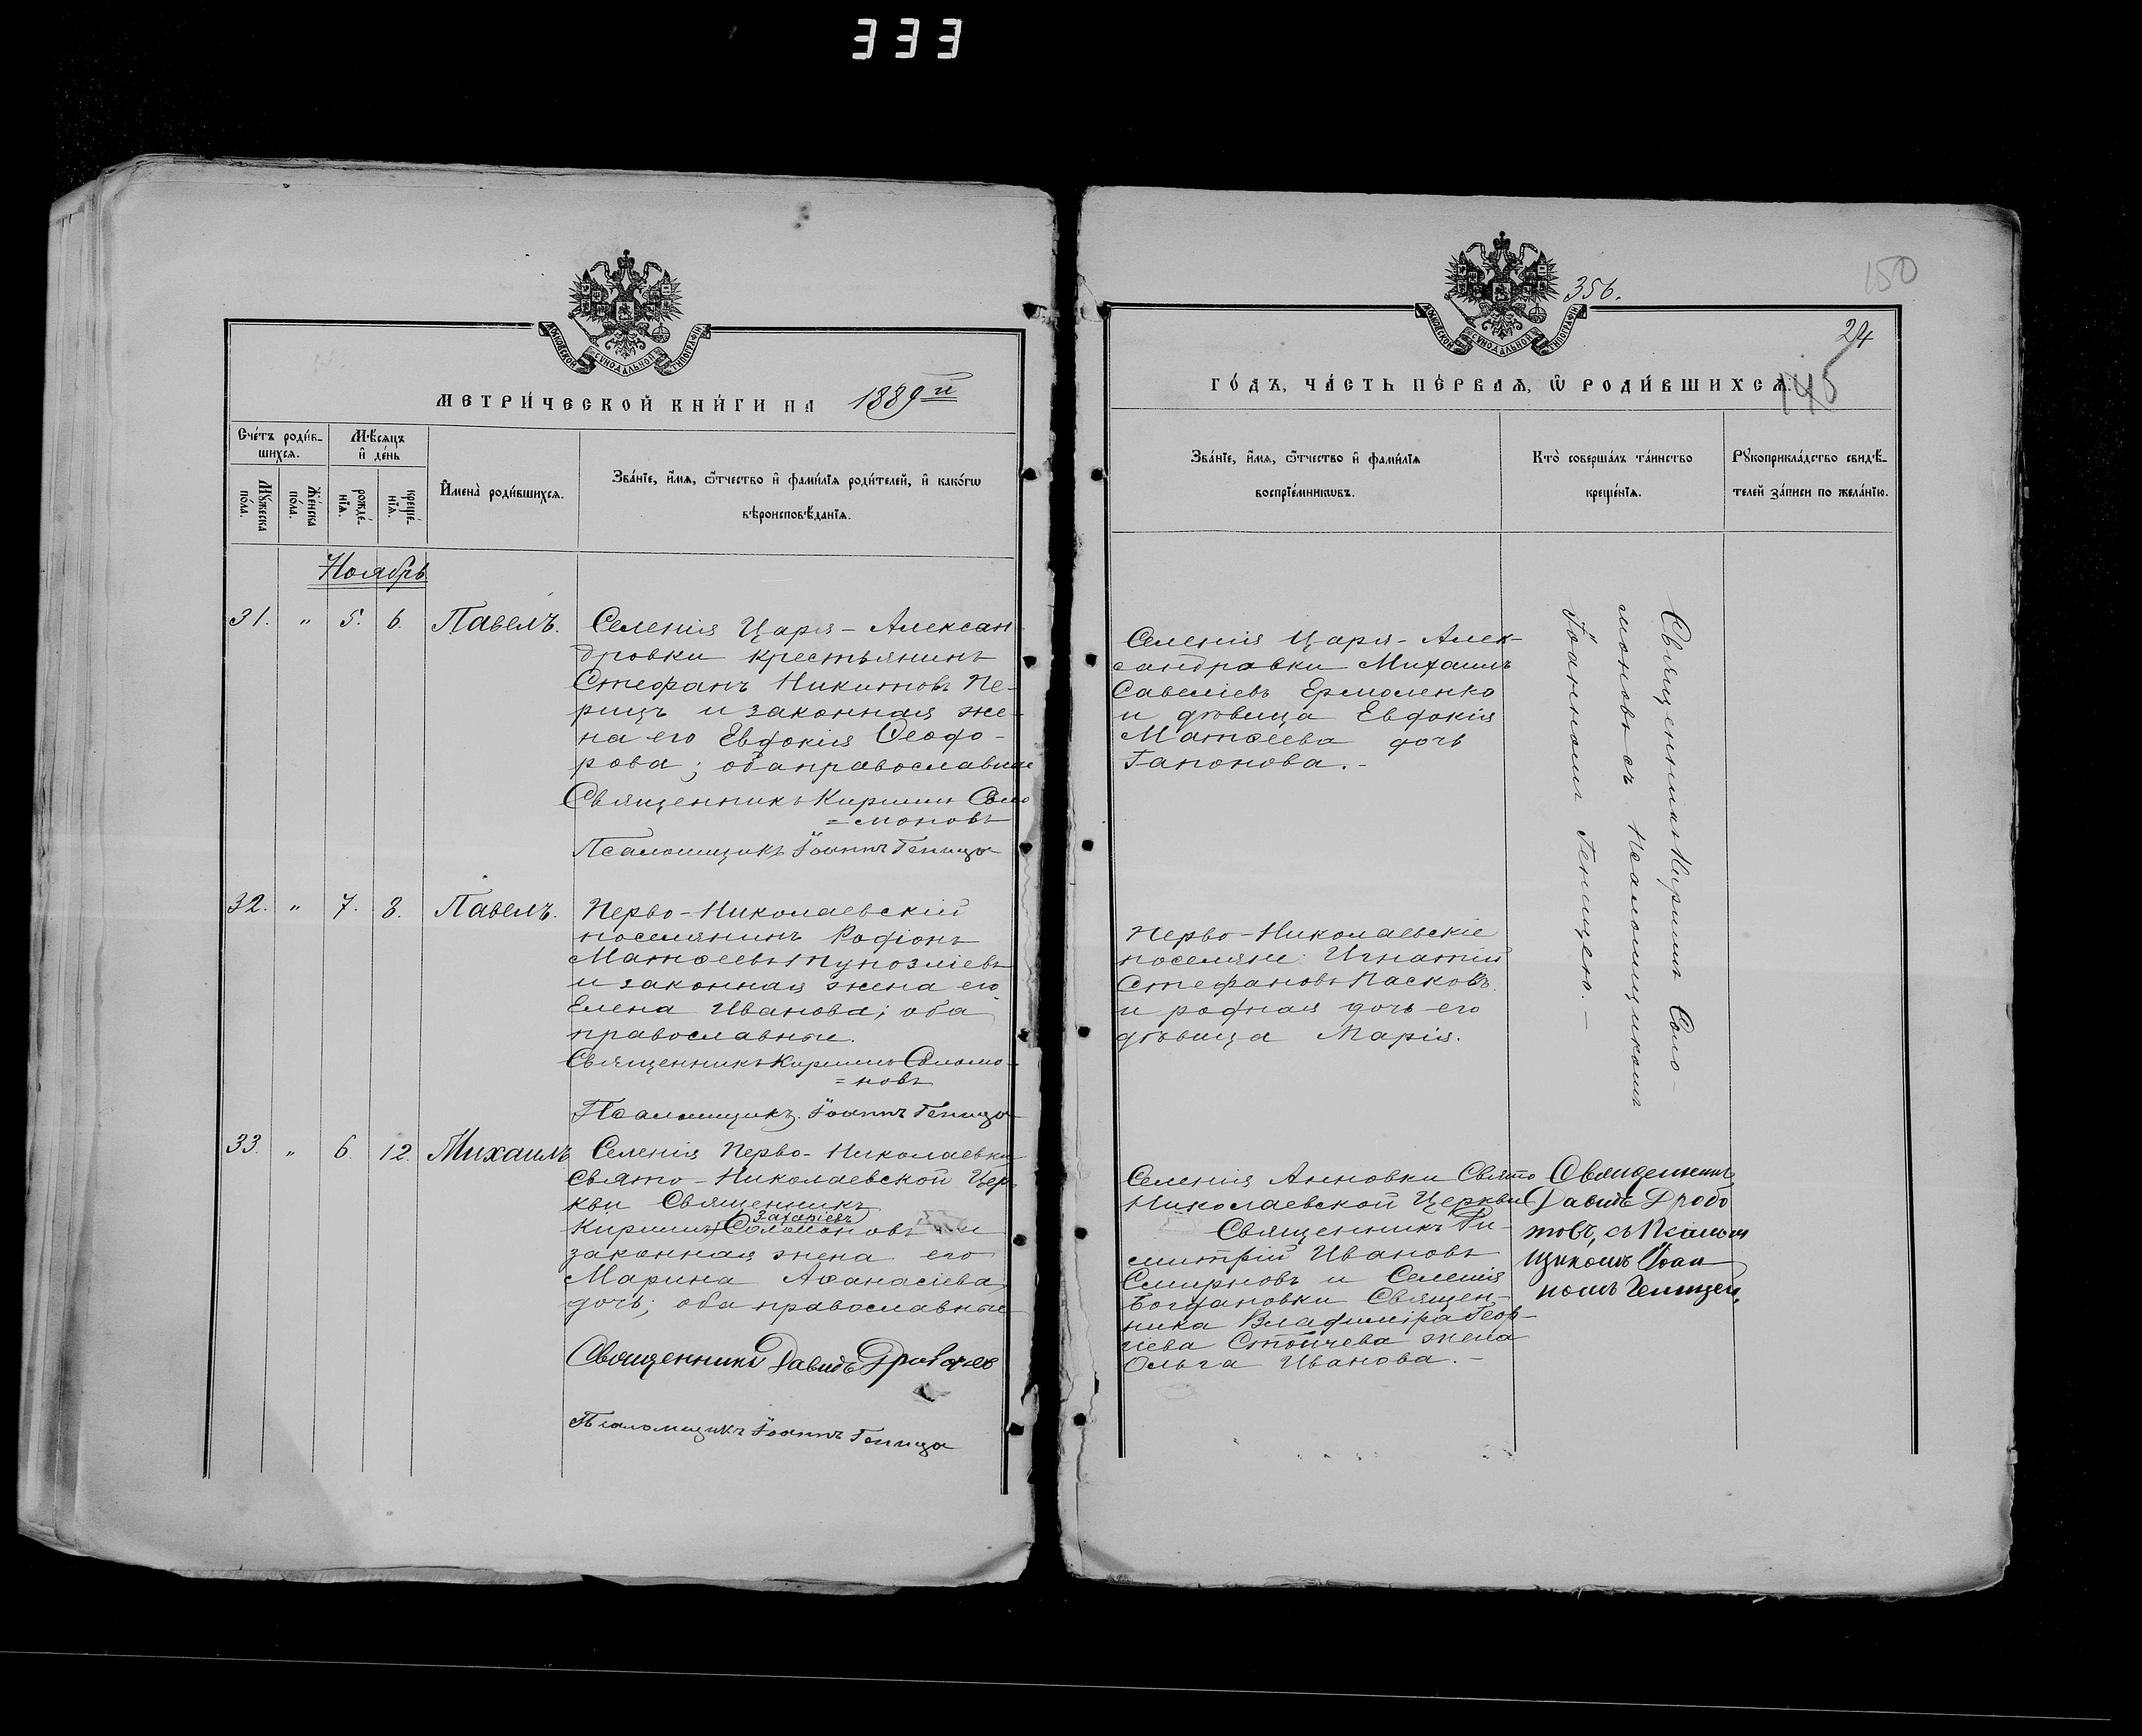 333
МОСКОВСКОЙ СѴНОДАЛЬНОЙ ТИПОГРАФІИ
МЕТРИ́ЧЕСКОЙ КНИ́ГИ НА 1889 й
Сче́тъ роди́в-
шихся.
Мѣ́сяцъ
и҆ де́нь
Мꙋ́жеска
по́ла.
Же́нска
по́ла.
рожде́-
нїѧ.
креще́-
нїѧ.
И҆мена̀ роди́вшихсѧ.
Зва́нїе, и҆́мѧ, ѻ҆́тчество и҆ фами́лїѧ роди́телей, и҆ како́гѡ
вѣроисповѣ́данїѧ.
Ноябрь
31. " 5. 6. Павелъ.
Селенія Царя-Алексан
дровки крестьянинъ
Стефанъ Никитовъ Пе-
рицъ и законная же-
на его Евдокія Ѳеодо-
рова; оба православные
Священникъ Кириллъ Соло
=моновъ
Псаломщикъ Іоаннъ Геница
32. " 7. 8. Павелъ.
Перво-Николаевскій
поселянинъ Родіонъ
Матѳеевъ
и законная жена его
Елена Иванова; оба
православные.
Священникъ Кириллъ Соломо-
=новъ
Псаломщикъ Іоаннъ Геница
33. " 6. 12. Михаилъ
Селенія Перво-Николаевки
Свято-Николаевской Цер
кви Священникъ
Захаріевъ
Кириллъ Соломоновъ и
законная жена его
Марина Аѳанасіева
дочь; оба православные
Священникъ Давидъ Дроботов
Псаломщикъ Іоаннъ Геница
МОСКОВСКОЙ СѴНОДАЛЬНОЙ ТИПОГРАФІИ
356.
150
24
145
ГО́ДЪ, ЧА́СТЬ ПЕ́РВАѦ, Ѽ РОДИ́ВШИХСѦ.
Зва́нїе, и҆́мѧ, ѻ҆́тчество и҆ фами́лїѧ
воспрїе́мникѡвъ.
Кто̀ соверша́лъ та́инство
креще́нїѧ.
Рꙋкоприкла́дство свидѣ́-
телей за́писи по жела́нїю.
Селенія Царя-Алек-
сандровки Михаилъ
Савеліевъ Ермоленко
и дѣвица Евдокія
Матѳеева дочь
Гапонова.-
Священникъ Кириллъ Соло-
моновъ съ Псаломщикомъ
Іоанномъ Геницею.-
Перво-Николаевскіе
поселяне: Игнатій
Стефановъ Пасковъ
и родная дочь его
дѣвица Марія.
Селенія Анновки Свято
Николаевской Церкви
Священникъ Ди-
митрій Ивановъ
Смирновъ и Селенія
Богдановки Священ-
ника Владиміра Геор-
гіева Стойчева жена
Ольга Иванова.-
Священникъ
Давидъ Дробо
товъ, съ Псалом
щикомъ Іоан
номъ Геницей.